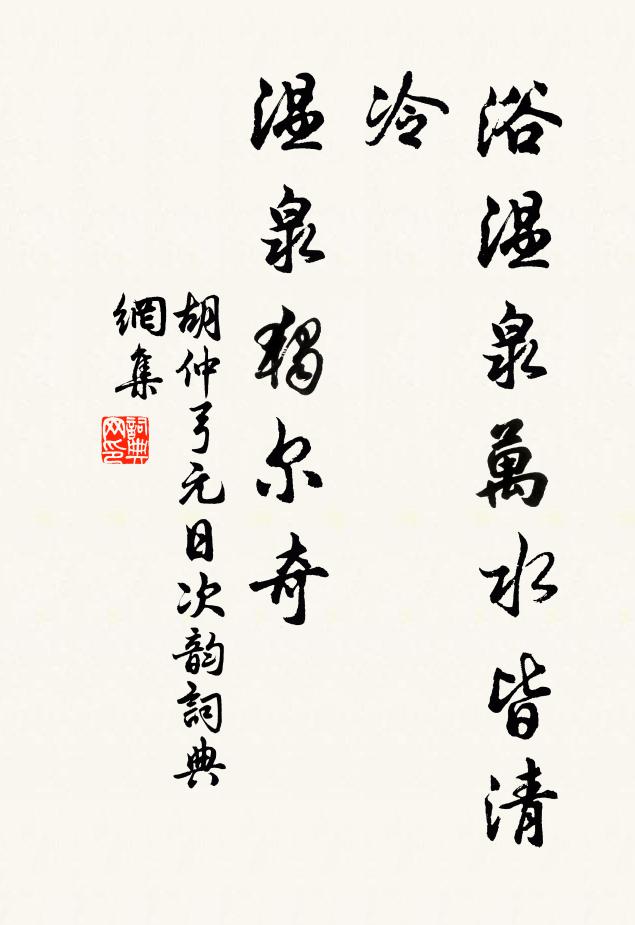 浴温泉萬水皆清
冷
温泉獨尔奇
胡仲弓元日次韵詞典
網集
詞典
网印